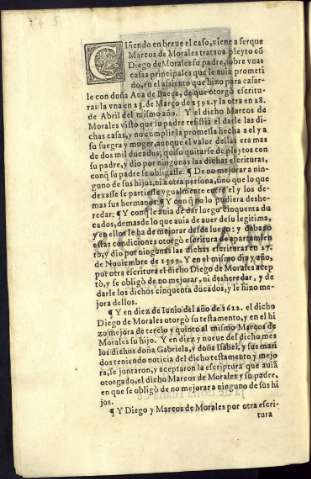 Iñendo en breue el caso, viene a ser que
Marcos de Morales tratò vn pleyto cõ
Diego de Morales su padre, sobre vnas
casas principales que le auia prometi
do, en el assiento que hizo para casar-
le con doña Ana de Baeça, que otorgò escritu-
ras: la vna en 15. de Março de 1592. y la otra en 28.
de Abril del mismo año. Y el dicho Marcos de
Morales visto que su padre resistia el darle las di-
chas casas, y no cumplir la promessa hecha a el y a
su suegra y muger, aunque el valor dellas era mas
de dos mil ducados, quiso quitarse de pleytos con
su padre, y dio por ningunas las dichas escrituras,
conq̃ su padre se obligasse. ¶ De no mejorar a nin-
guno de sus hijos, ni a otra persona, sino que lo que
dexasse se partiesse ygualmente entre el y los de-
mas sus hermanos. ¶ Y con q̃ no lo pudiera deshe-
redar: ¶ Y conq̃ le auia de dar luego cinquenta du
cados, demas de lo que auia de auer de su legitima,
y en ellos le ha de mejorar desde luego: y debaxo
destas condiciones otorgò escritura de apartamien
to, y dio por ningunas las dichas escrituras en 27.
de Nouiembre de 1599. Y en el mismo dia y año,
por otra escritura el dicho Diego de Morales acep
tò, y se obligò de no mejorar, ni desheredar, y de
darle los dichos cinquenta ducados, y le hizo me-
jora dellos.
¶ Y en diez de Iunio del año de 1622. el dicho
Diego de Morales otorgò su testamento, y en el hi
zo mejora de tercio y quinto al mismo Marcos de
Morales su hijo. Y en diez y nueue del dicho mes
los dichos doña Gabriela, y doña Isabel, y sus mari
dos teniendo noticia del dicho testamento y mejo
ra, se juntaron, y aceptaron la escritura que auia
otorgado, el dicho Marcos de Morales y su padre,
en que se obligò de no mejorar a ninguno de sus hi
jos.
¶ Y Diego y Marcos de Morales por otra escri-
tura